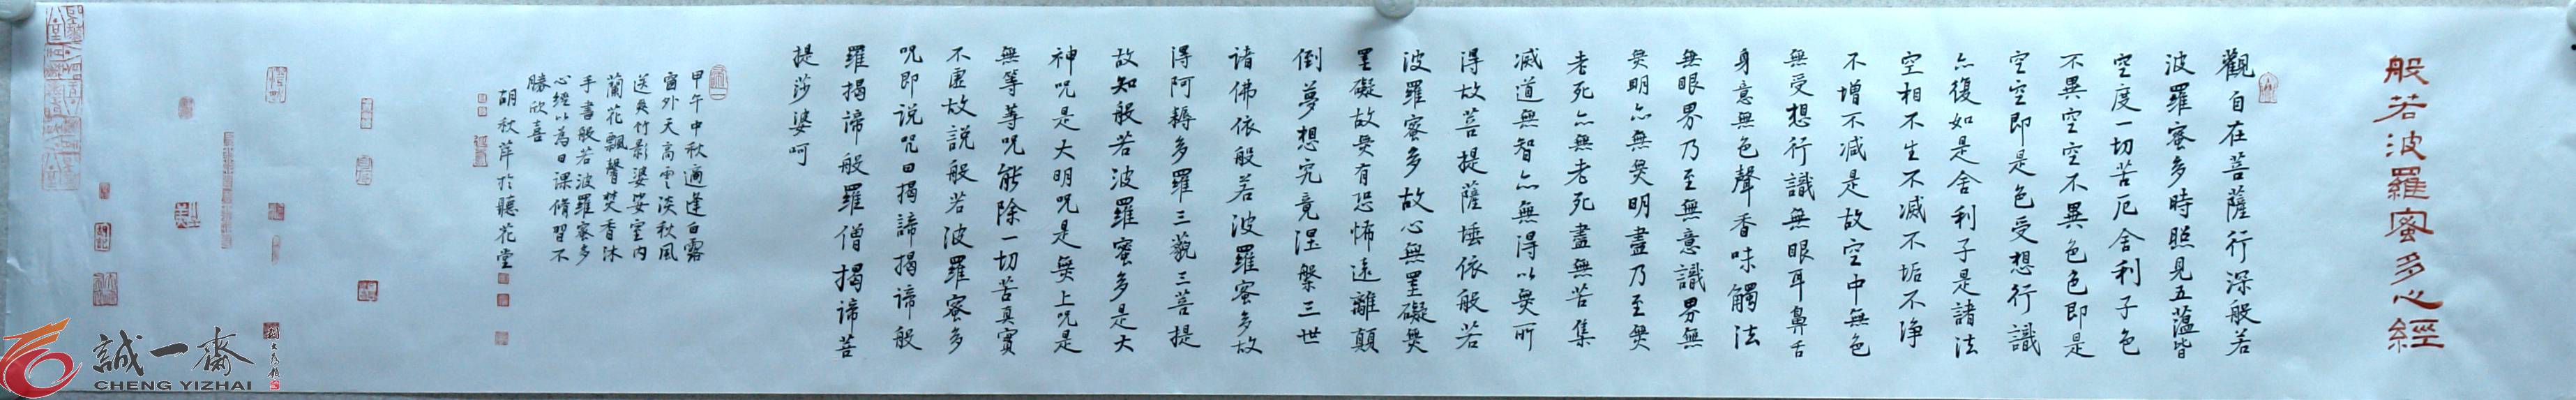 般若波羅蜜多心經
觀自在菩薩行深般若
波羅蜜多時照見五蕴皆
空度一切苦厄舍利子色
不異空空不異色色即是
空空即是色受想行識
亦復如是舍利子是諸法
空相不生不滅不垢不净
不增不减是故空中無色
無受想行識無眼耳鼻舌
身意無色聲香味觸法
無眼界乃至無意識界無
無明亦無無明盡乃至無
老死亦無老死盡無苦集
滅道無智亦無得以無所
得故菩提薩埵依般若
波羅蜜多故心無罣礙無
罣礙故無有恐怖遠離顛
倒夢想究竟涅槃三世
诸佛依般若波羅蜜多故
得阿耨多羅三藐三菩提
故知般若波羅蜜多是大
神咒是大明咒是無上咒是
無等等咒能除一切苦真實
不虛故說般若波羅蜜多
咒即说咒曰揭諦揭諦般
羅揭諦般羅僧揭諦菩
提莎婆呵
甲午中秋適逢白露
窗外天高雲淡秋風
送爽竹影婆娑室内
蘭花飄馨焚香沐
手書般若波羅蜜多
心經以為日課脩習不
勝欣喜
胡秋萍於聽花堂
誠一齋
CHENG YIZHAI